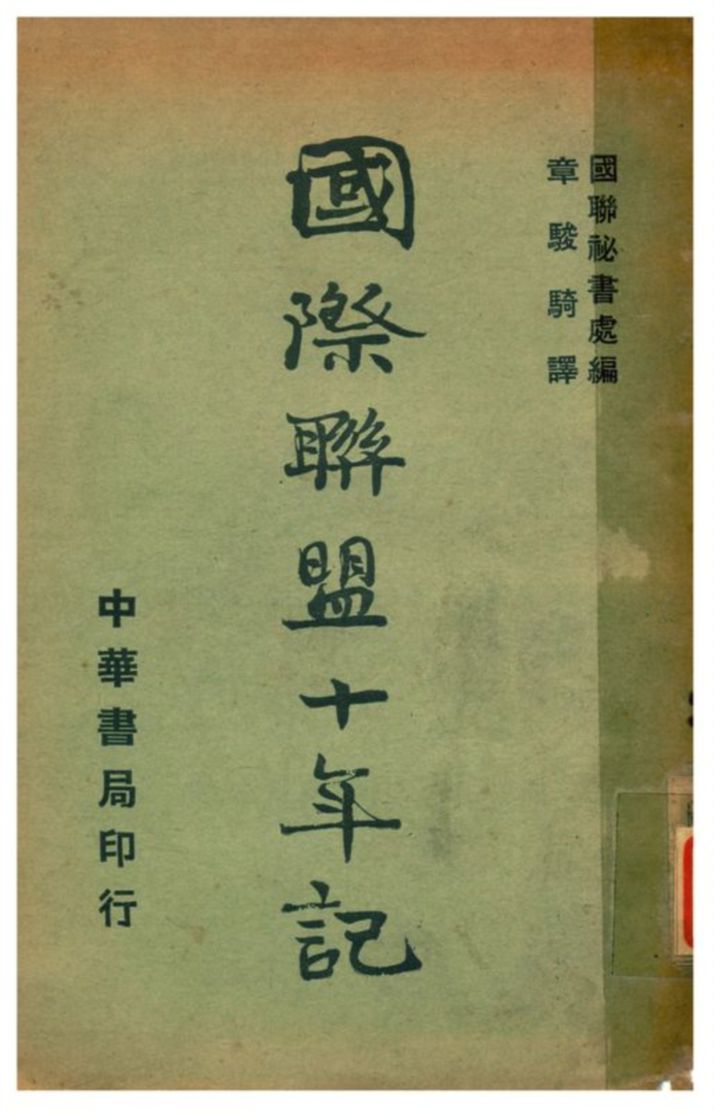 國聯祕書處編
章駿騎譯
國際聯盟十年記
中華書局印行